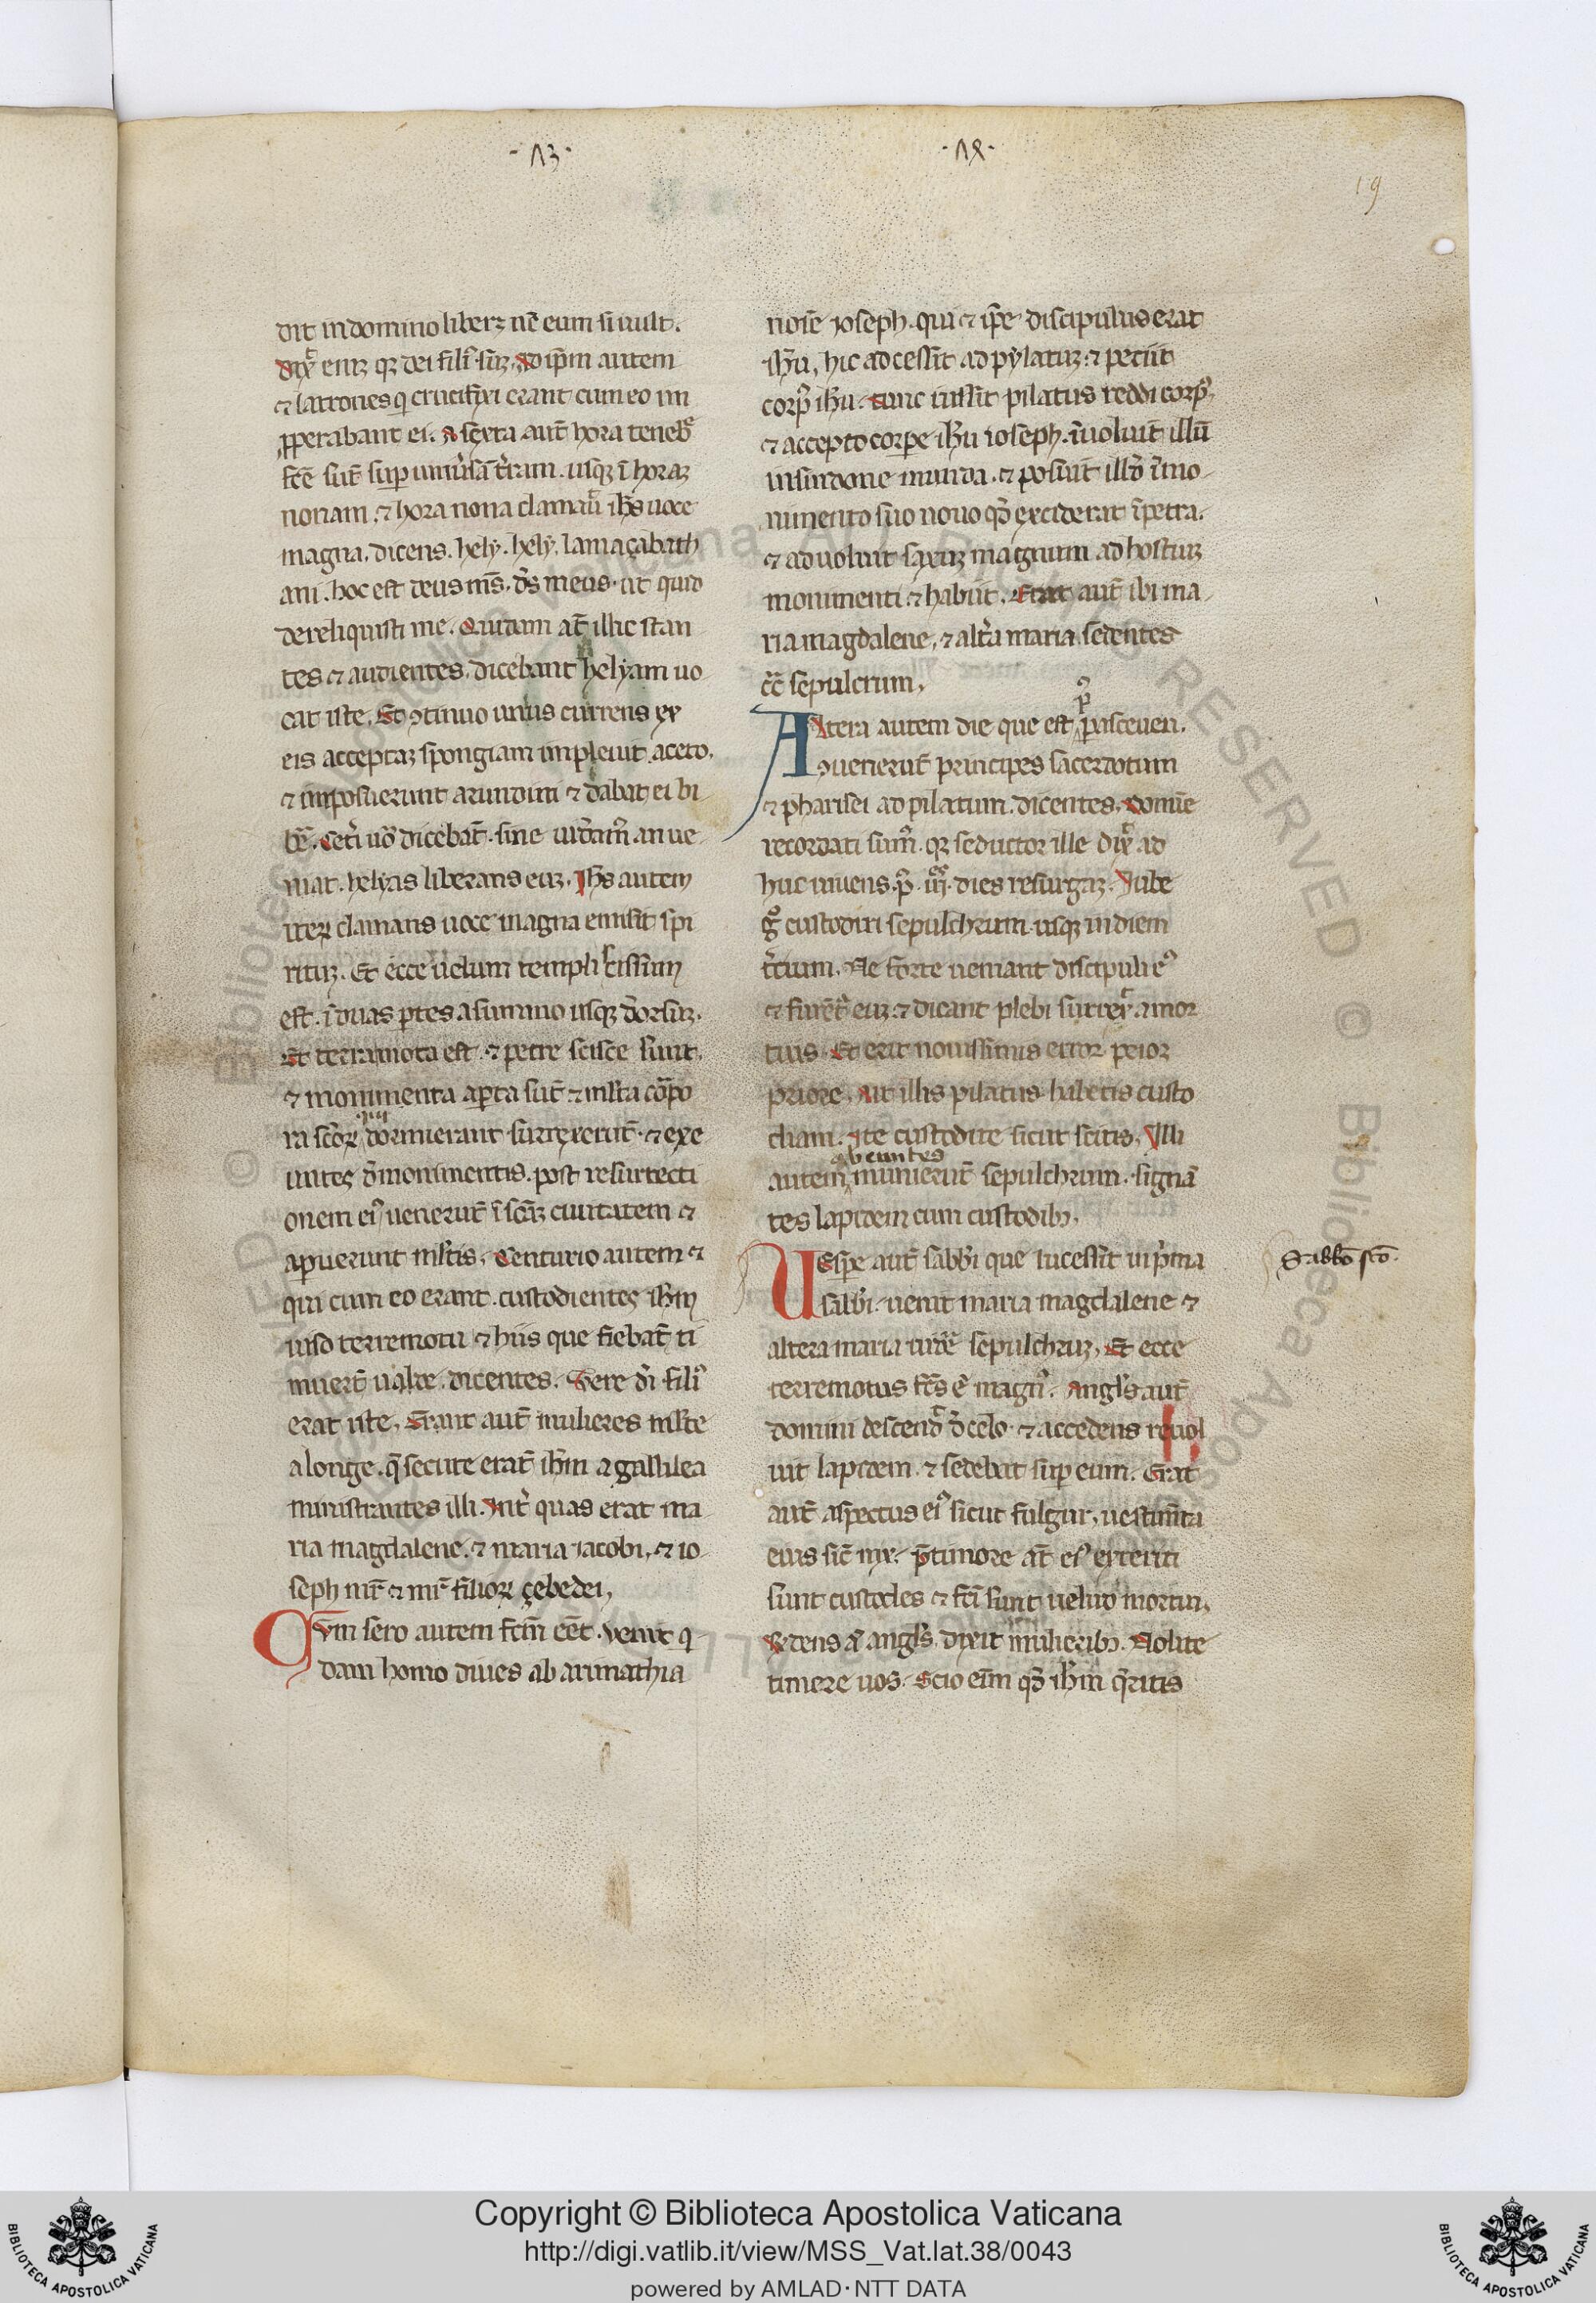 -13-
-18-
19
dit in domino liberꝫ nc̄ eum si uult.
dix̾ eniꝫ qꝫ dei fili᷒ suꝫ. Id ip̄m autem
⁊ latrones q̇ crucifixi erant cum eo im
ꝓperabant ei. A sexta aut̄ hora teneb᷒
fc̄e sūt suꝑ uniuẜsā t̄ram. usqꝫ ī horaꝫ
nonam. ⁊ hora nona clamau̾ ih̄s uoce
magna. dicens. hely. hely. lamaçabath
ani. hoc est deus ms̄. ds̄ meus. ut quid
dereliquisti me. Quidam at̄ illic stan
tes ⁊ audientes. dicebant helyam uo
cat iste. Et ꝯtinuo unus currens ex
eis acceptaꝫ spongiam impleuit aceto.
⁊ imposuerunt arundini ⁊ dabat ei bi
be᷒. Cet̾i uō dicebāt. sine uideam᷒ an ue
niat. helyas liberans euꝫ. Ih̄s autem
iteꝝ clamans uoce magna emisit spi
rituꝫ. Et ecce uelum templi scissum
est. ī duas ꝑtes a summo usqꝫ deorsuꝫ.
Et terramota est. ⁊ petre scisse sunt.
⁊ monumenta aꝑta sūt ⁊ ml̄ta corpo
ra sc̄oꝝ qui dormierant surrexerūt. ⁊ exe
untes d̾ monimentis. post resurrecti
onem ei᷒ uenerūt ī sc̄aꝫ ciuitatem ⁊
apuerunt ml̄tis. Centurio autem ⁊
qui cum eo erant. custodientes ih̄m
uiso terremotu ⁊ hiis que fiebāt ti
muert̄ ualde. dicentes. Vere di̾ fili᷒
erat iste. Erant aut̄ mulieres ml̄te
a longe. q̄ secute erāt ih̄m a gallilea
ministrantes illi. Int̾ quas erat ma
ria magdalene. ⁊ maria iacobi. ⁊ io
seph mr̄ ⁊ mr̄ filioꝝ çebedei.
Cvm sero autem fcm̄ eēt. venit q̇
dam homo diues ab arimathia
noīe ioseph. qui ⁊ ip̄e discipulus erat
ih̄u. hic adcessit ad pylatuꝫ. ⁊ petiit
corp᷒ ih̄u. tunc iussit pilatus reddi corp᷒.
⁊ accepto corꝑe ih̄u ioseph. īuoluit illū
in sindone munda. ⁊ posuit illud ī mo
numento suo nouo qd̾ exciderat ī petra.
⁊ aduoluit saxuꝫ magnum ad hostiuꝫ
monumenti. ⁊ habiit. Erat aut̄ ibi ma
ria magdalene. ⁊ alt̾a maria. sedentes
cc̄ sepulcrum.
Altera autem die que est p᷒ parasceuen.
ꝯuenerūt principes sacerdotum
⁊ pharisei ad pilatum. dicentes. domīe
recordati sum᷒. qꝫ seductor ille dix̾ ad
huc uiuens. p᷒. iii. dies resurgaꝫ. Iube
gͦ custodiri sepulchrum. usqꝫ in diem
t̾cium. Ne forte ueniant discipuli e᷒
⁊ furēt̾ euꝫ. ⁊ dicant plebi surrex̾ a mor
tuis. Et erit nouissimus error peior
priore. Ait illis pilatus. habetis custo
diam. Ite custodite sicut scitis. Illi
autem abeuntes munierūt sepulchrum. signā
tes lapidem cum custodibꝫ.
Vesꝑe aut̄ sabbi̾ que lucessit in p̾ma
sabbi̾. uenit maria magdalene ⁊
altera maria uidē sepulchruꝫ. Et ecce
terremotus fcs̄ ē magn᷒. Angl̄s aut̄
domini descend̾ d̾ celo. ⁊ accedens reuol
uit lapidem. ⁊ sedebat suꝑ eum. Erat
aut̄ aspectus ei᷒ sicut fulgur. uestim̄ta
eius sic̄ nix. p̄ timore at̄ ei᷒ exteriti
sunt custodes ⁊ fc̄i sunt uelud mortui.
Rn̄dens a᷒ angl̄s. dixit mulieribꝫ. Nolite
timere uos. Scio enī qd̾ ih̄m q̄ritis
Sabb̄o sc̄o.
Copyright © Biblioteca Apostolica Vaticana
http://digi.vatlib.it/view/MSS_Vat.lat.38/0043
powered by AMLAD·NTT DATA
BIBLIOTECA APOSTOLICA VATICANA
BIBLIOTECA APOSTOLICA VATICANA